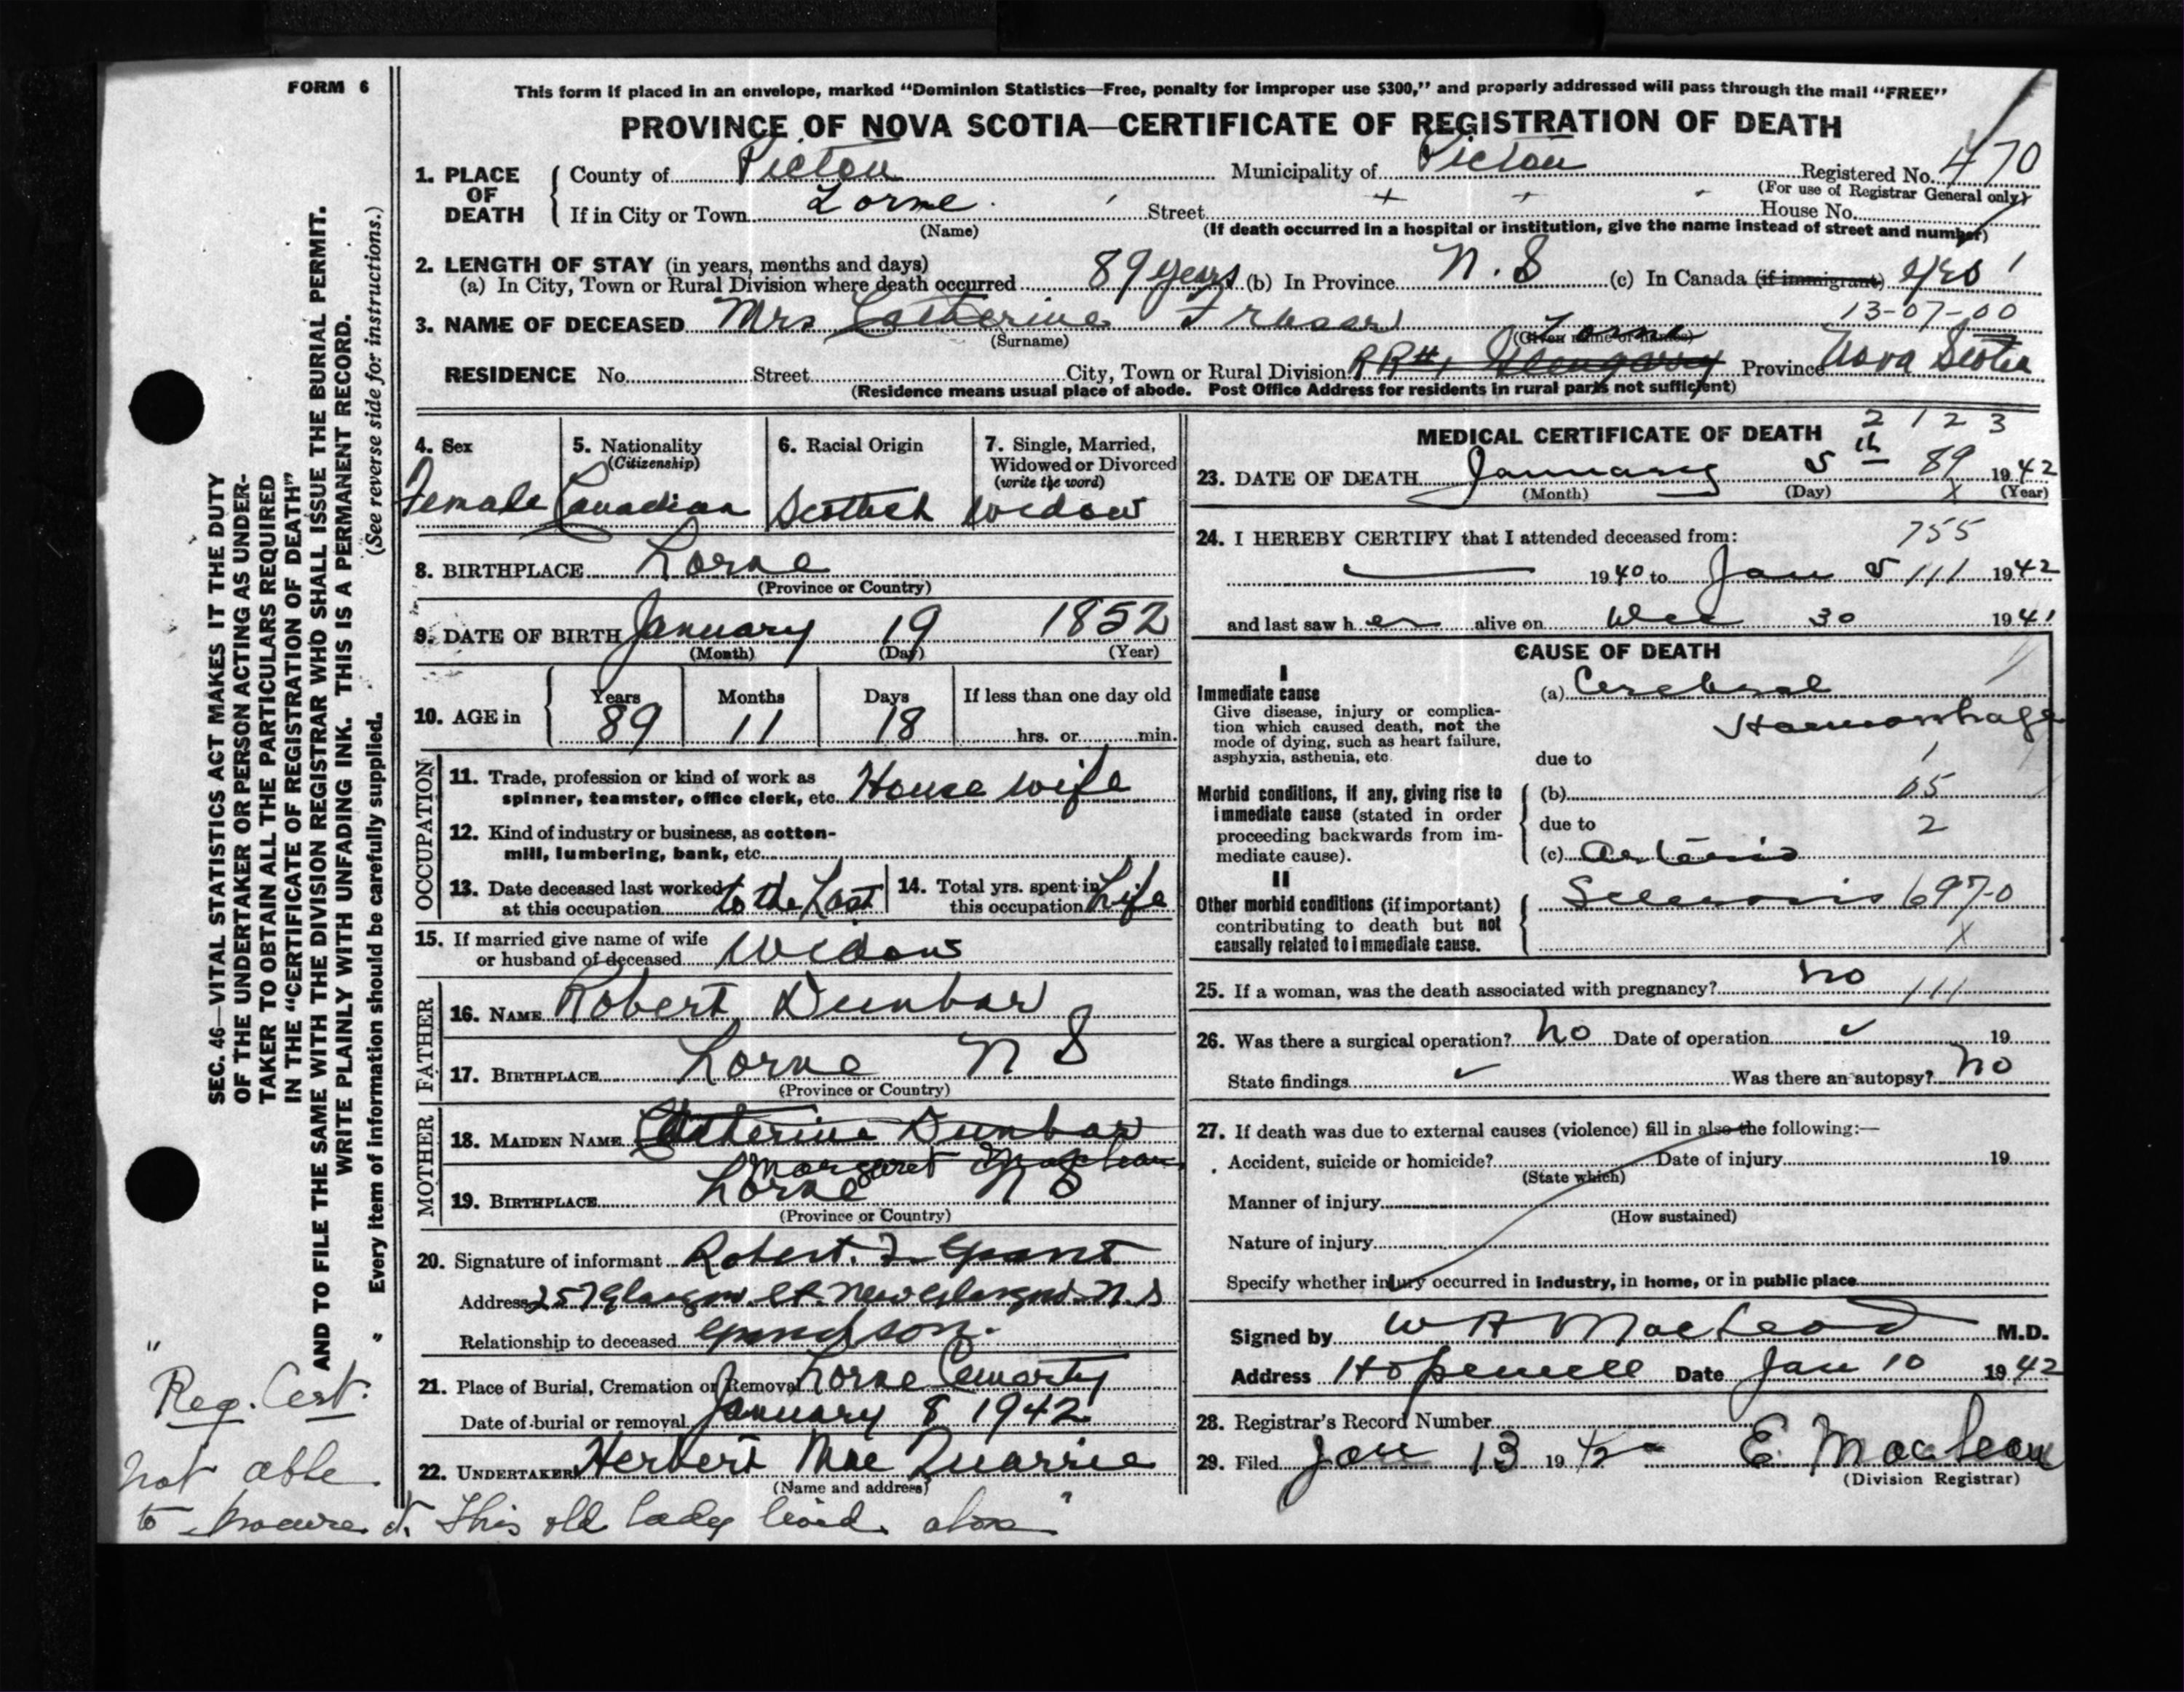 FORM 6
This form if placed in an envelope, marked "Dominion Statistics—Free, penalty for improper use $300," and properly addressed will pass through the mail "FREE"
PROVINCE OF NOVA SCOTIA—CERTIFICATE OF REGISTRATION OF DEATH
1. PLACE OF DEATH
County of Pictou Municipality of Pictou Registered No. 470
(For use of Registrar General only)
If in City or Town Lorne Street House No.
(Name) (If death occurred in a hospital or institution, give the name instead of street and number)
2. LENGTH OF STAY (in years, months and days)
(a) In City, Town or Rural Division where death occurred 89 years (b) In Province N. S (c) In Canada (if immigrant) yes 1
13-07-00
3. NAME OF DECEASED Mrs Catherine Fraser
(Surname) (Given name or names)
Lorne
RESIDENCE No. Street City, Town or Rural Division RR#1 Glengarry Province Nova Scotia
(Residence means usual place of abode. Post Office Address for residents in rural parts not sufficient)
4. Sex
Female
5. Nationality
(Citizenship)
Canadian
6. Racial Origin
Scottish
7. Single, Married,
Widowed or Divorced
(write the word)
Widow
8. BIRTHPLACE Lorne
(Province or Country)
9. DATE OF BIRTH January 19 1852
(Month) (Day) (Year)
10. AGE in
Years Months Days If less than one day old
89 11 18 hrs. or min.
OCCUPATION
11. Trade, profession or kind of work as
spinner, teamster, office clerk, etc. House wife
12. Kind of industry or business, as cotton-
mill, lumbering, bank, etc.
13. Date deceased last worked
at this occupation to the Last
14. Total yrs. spent in
this occupation Life
15. If married give name of wife
or husband of deceased Widow
FATHER
16. NAME Robert Dunbar
17. BIRTHPLACE Lorne N S
(Province or Country)
MOTHER
18. MAIDEN NAME Catherine Dunbar
Margaret MacLean
19. BIRTHPLACE Lorne N S
(Province or Country)
20. Signature of informant Robert. F. Grant
Address 257 Glasgow. St. New Glasgow N. S
Relationship to deceased Grandson.
21. Place of Burial, Cremation or Removal Lorne Cemarty
Date of burial or removal January 8 1942
22. UNDERTAKER Herbert Mac Quarrie
(Name and address)
MEDICAL CERTIFICATE OF DEATH 2 1 2 3
23. DATE OF DEATH January 5th 89 1942
(Month) (Day) X (Year)
24. I HEREBY CERTIFY that I attended deceased from: 755
1940 to Jan 5 111 1942
and last saw her alive on Dec 30 1941
CAUSE OF DEATH
I
Immediate cause
Give disease, injury or complica-
tion which caused death, not the
mode of dying, such as heart failure,
asphyxia, asthenia, etc.
(a) Cerebral
Haemorrhage
due to 1
Morbid conditions, if any, giving rise to
immediate cause (stated in order
proceeding backwards from im-
mediate cause).
(b) 05
due to 2
(c) Arterio
II
Other morbid conditions (if important)
contributing to death but not
causally related to immediate cause.
Sclerosis 697-0
X
25. If a woman, was the death associated with pregnancy? no 111
26. Was there a surgical operation? No Date of operation 19
State findings Was there an autopsy? No
27. If death was due to external causes (violence) fill in also the following:—
Accident, suicide or homicide? Date of injury 19
(State which)
Manner of injury
(How sustained)
Nature of injury
Specify whether injury occurred in industry, in home, or in public place
Signed by W A MacLeod M.D.
Address Hopewell Date Jan 10 1942
28. Registrar's Record Number
29. Filed Jan 13 1942 E MacLean
(Division Registrar)
SEC. 46—VITAL STATISTICS ACT MAKES IT THE DUTY
OF THE UNDERTAKER OR PERSON ACTING AS UNDER-
TAKER TO OBTAIN ALL THE PARTICULARS REQUIRED
IN THE "CERTIFICATE OF REGISTRATION OF DEATH"
AND TO FILE THE SAME WITH THE DIVISION REGISTRAR WHO SHALL ISSUE THE BURIAL PERMIT.
WRITE PLAINLY WITH UNFADING INK. THIS IS A PERMANENT RECORD.
Every item of information should be carefully supplied. (See reverse side for instructions.)
"Reg. Cert.
not able
to procure it. This old lady lived alone"